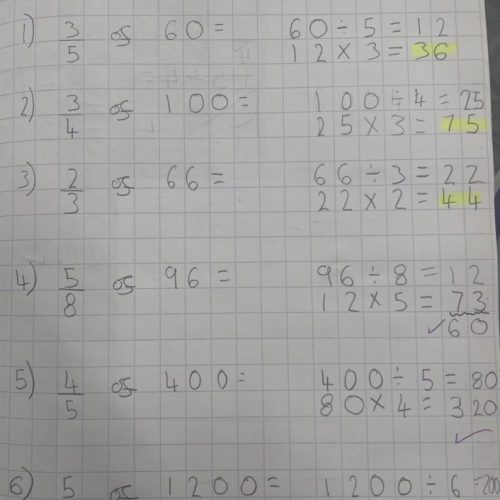 1) 3/5 of 60 = 60 ÷ 5 = 12
12 × 3 = 36
2) 3/4 of 100 = 100 ÷ 4 = 25
25 × 3 = 75
3) 2/3 of 66 = 66 ÷ 3 = 22
22 × 2 = 44
4) 5/8 of 96 = 96 ÷ 8 = 12
12 × 5 = 73
✓60
5) 4/5 of 400 = 400 ÷ 5 = 80
80 × 4 = 320
✓
6) 5 of 1200 = 1200 ÷ 6 = 200